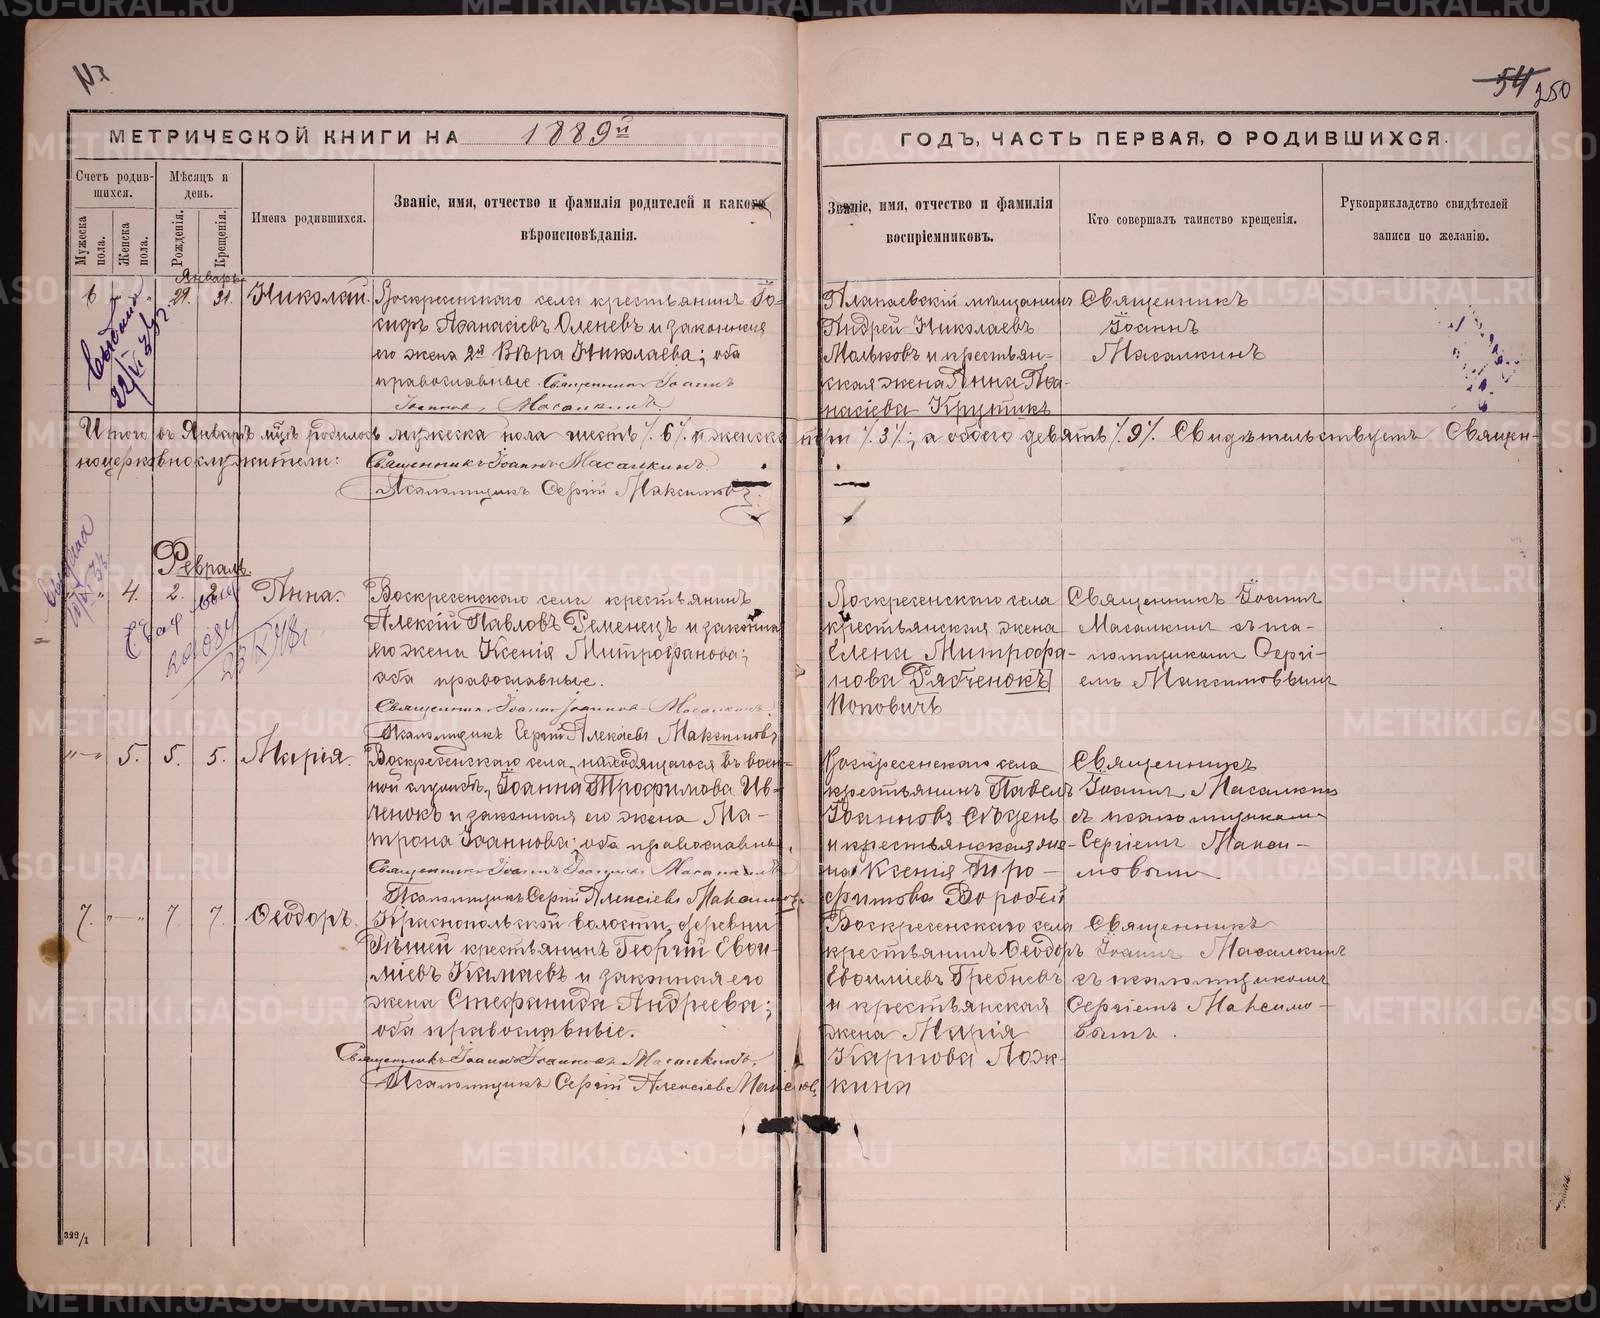 54
250
МЕТРИЧЕСКОЙ КНИГИ НА 1889й
ГОДЪ, ЧАСТЬ ПЕРВАЯ, О РОДИВШИХСЯ.
Счетъ родив-
шихся.
Мужеска
пола.
Женска
пола.
Мѣсяцъ и
день.
Рожденія.
Крещенія.
Имена родившихся.
Званіе, имя, отчество и фамилія родителей и какого
вѣроисповѣданія.
Званіе, имя, отчество и фамилія
воспріемниковъ.
Кто совершалъ таинство крещенія.
Рукоприкладство свидѣтелей
записи по желанію.
Январь
6 21. Николай.
Воскресенскаго села крестьянинъ Іо-
сифъ Аѳанасіевъ Оленевъ и законная
его жена 2я Вѣра Николаева; оба
православные. Священникъ Іоаннъ
Іоанновъ Масалкинъ.
Алапаевскій мѣщанинъ
Андрей Николаевъ
Мальковъ и крестьян-
ская жена Анна Аѳа-
насіева Крутикъ
Священникъ
Іоаннъ
Масалкинъ
Итого въ Январѣ мцѣ родилось мужеска пола шесть /.6/. и женска три /.3/.; а обоего девять /.9/. Свидѣтельствуетъ Священ-
ноцерковнослужители: Священникъ Іоаннъ Масалкинъ.
Псаломщикъ Сергій Максимовъ.
Февраль.
4. 2. 2. Анна.
Воскресенскаго села крестьянинъ
Алексій Павловъ Ременецъ и законная
его жена Ксенія Митрофанова;
оба православные.
Священникъ Іоаннъ Іоанновъ Масалкинъ.
Псаломщикъ Сергій Алексіевъ Максимовъ
Воскресенскаго села
крестьянская жена
Елена Митрофа-
нова Рябченокъ
Поповичъ
Священникъ Іоаннъ
Масалкинъ съ пса-
ломщикомъ Сергі-
емъ Максимовымъ
5. 5. 5. Марія.
Воскресенскаго села, находящагося въ воен-
ной службѣ, Іоанна Трофимова Ив-
ченокъ и законная его жена Ма-
трона Іоаннова; оба православны.
Священникъ Іоаннъ Іоанновъ Масалкинъ
Псаломщикъ Сергій Алексіевъ Максимовъ
Воскресенскаго села
крестьянинъ Павелъ
Іоанновъ Сѣдень
и крестьянская же-
на Ксенія Тро-
фимова Воробей
Священникъ
Іоаннъ Масалкинъ
съ псаломщикомъ
Сергіемъ Макси-
мовымъ
7. 7. 7. Ѳеодоръ.
Краснопольской волости, деревни
крестьянинъ Георгій Евѳи-
міевъ Камаевъ и законная его
жена Стефанида Андреева;
оба православные.
Священникъ Іоаннъ Іоанновъ Масалкинъ,
Псаломщикъ Сергій Алексіевъ Максимовъ
Воскресенскаго села
крестьянинъ Ѳеодоръ
Евѳиміевъ Гребневъ
и крестьянская
жена Марія
Карпова Лож-
кина
Священникъ
Іоаннъ Масалкинъ
съ псаломщикомъ
Сергіемъ Максимо-
вымъ.
322/1
METRIKI.GASO-URAL.RU